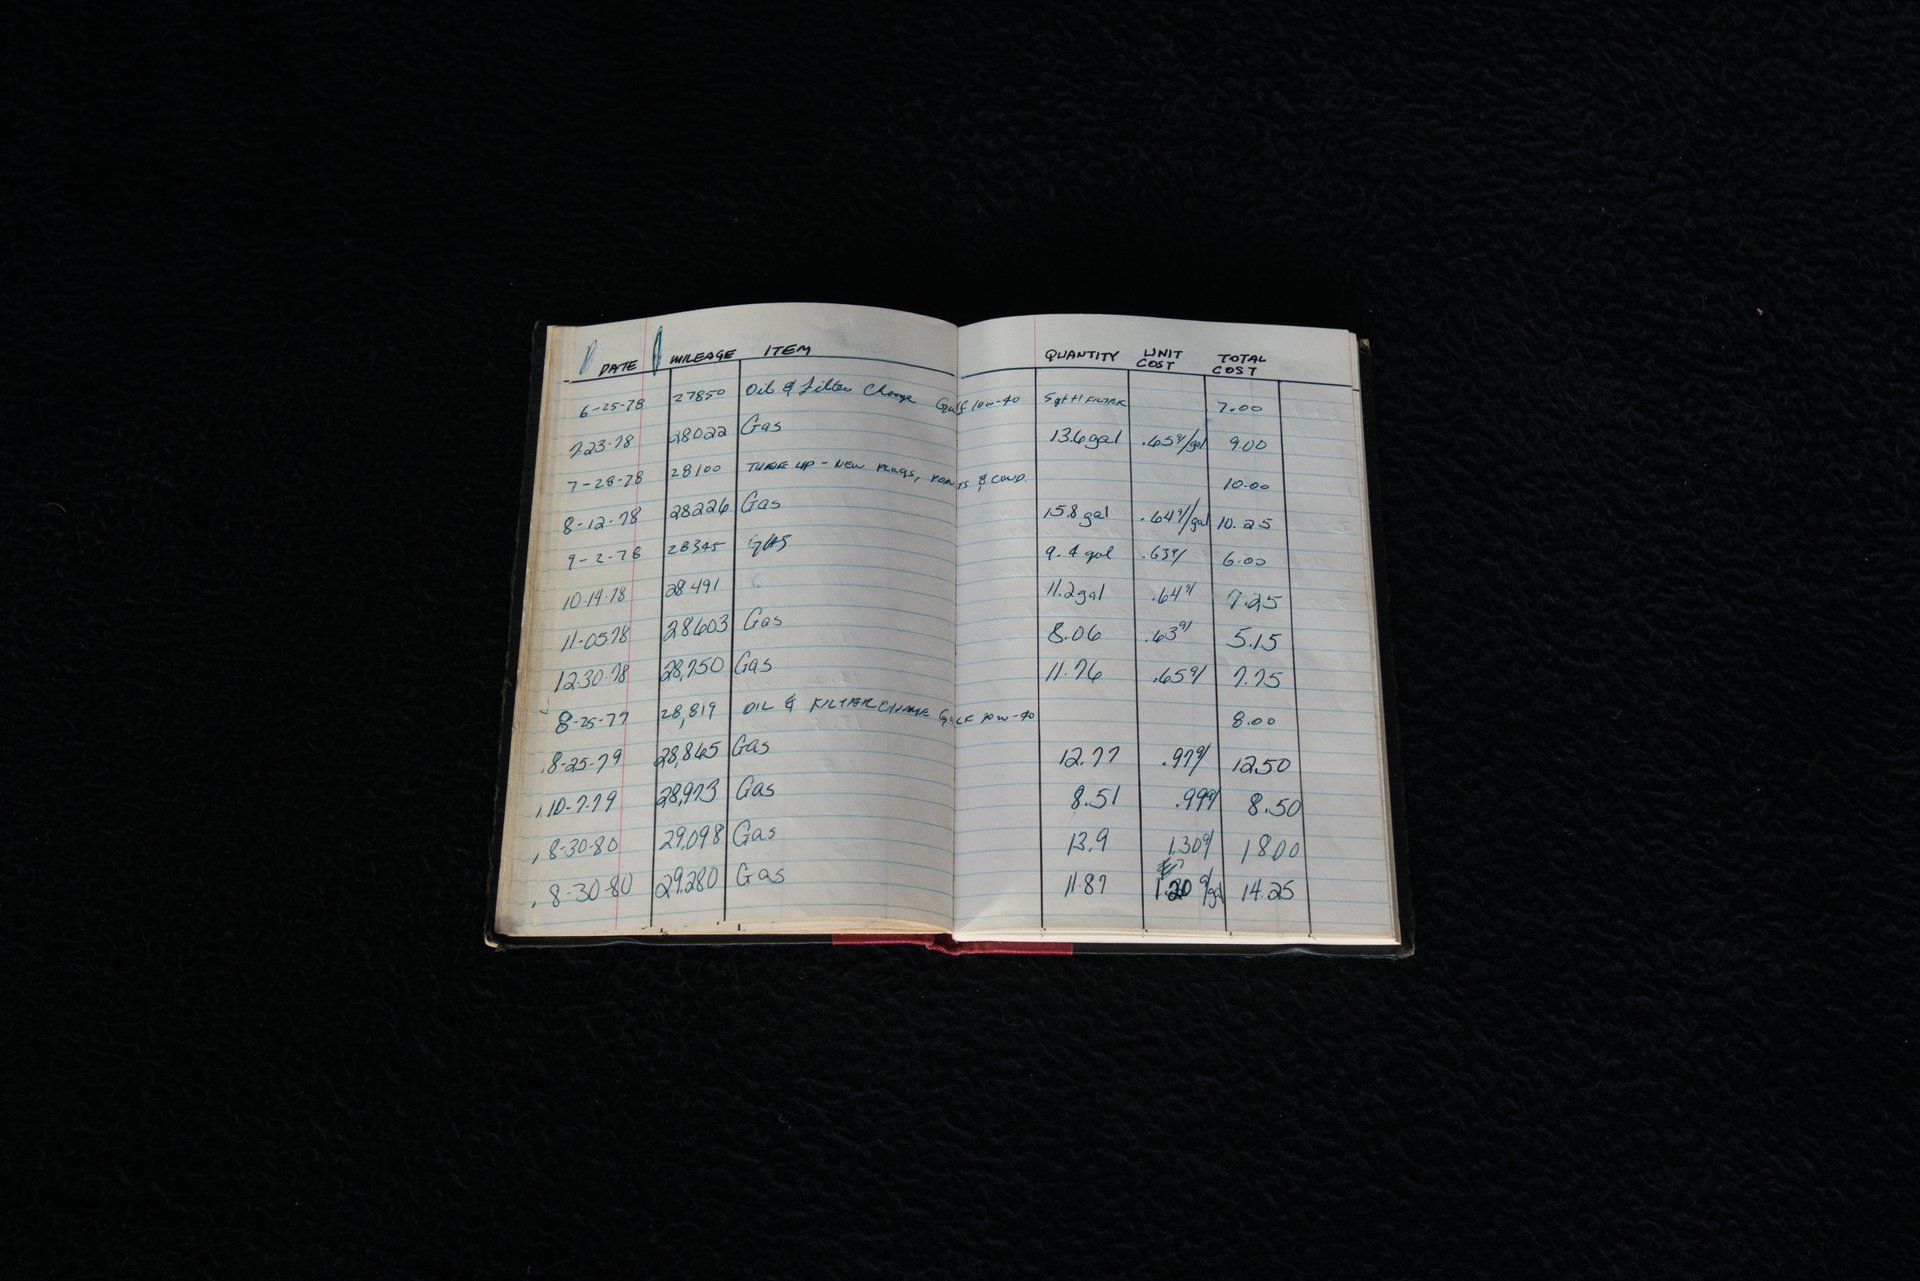 DATE MILEAGE ITEM QUANTITY UNIT COST TOTAL COST
6-25-78 27850 Oil & Filter Change Gulf 10w-40 5qt+1 FILTER 7.00
7-23-78 28022 Gas 13.6gal .659/gal 9.00
7-28-78 28100 TUNE UP - NEW PLUGS, POINTS & COND. 10.00
8-12-78 28226 Gas 15.8 gal .649/gal 10.25
9-2-78 28345 GAS 9.4 gal .639/ 6.00
10-14-78 28491 11.2gal .649/ 7.25
11-05-78 28603 Gas 8.06 .639/ 5.15
12-30-78 28,750 Gas 11.76 .659/ 7.75
8-25-79 28,819 OIL & FILTER CHANGE GULF 10W-40 8.00
8-25-79 28,865 Gas 12.77 .979/ 12.50
10-7-79 28,973 Gas 8.51 .999/ 8.50
8-30-80 29,098 Gas 13.9 1.309/ 18.00
8-30-80 29,280 Gas 11.87 1.20 9/gal 14.25